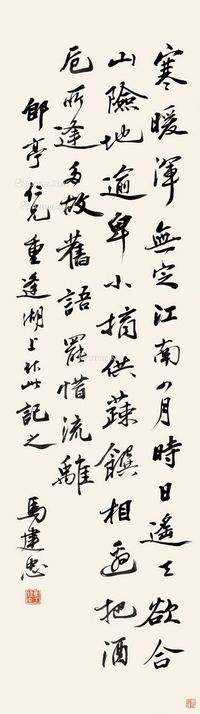 寒暖渾無定江南四月時日遙天欲合
山險地逾卑小摘供蔬饌相邀把酒
卮所逢多故舊語罷惜流離
郘亭仁兄重逢湖上作此記之
馬建忠